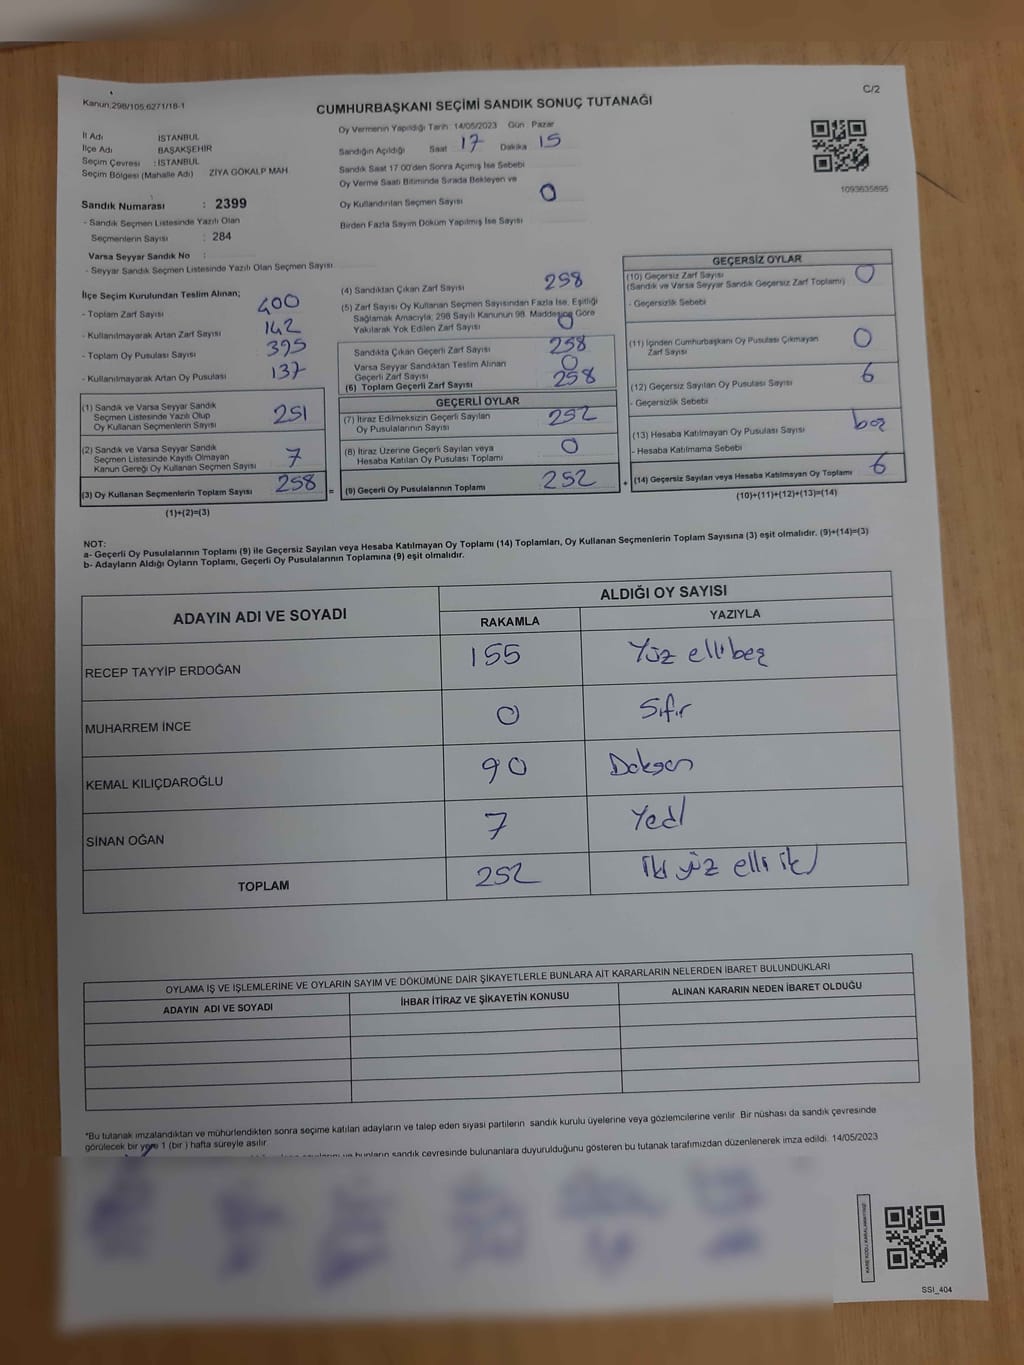 Kanun:298/105,6271/18-1
C/2
CUMHURBAŞKANI SEÇİMİ SANDIK SONUÇ TUTANAĞI
İl Adı : İSTANBUL
İlçe Adı BAŞAKŞEHİR
Seçim Çevresi : İSTANBUL
Seçim Bölgesi (Mahalle Adı) ZİYA GÖKALP MAH.
Sandık Numarası : 2399
- Sandık Seçmen Listesinde Yazılı Olan
Seçmenlerin Sayısı : 284
Varsa Seyyar Sandık No :
- Seyyar Sandık Seçmen Listesinde Yazılı Olan Seçmen Sayısı
Oy Vermenin Yapıldığı Tarih: 14/05/2023 Gün : Pazar
Sandığın Açıldığı Saat 17 Dakika 15
Sandık Saat 17:00'den Sonra Açılmış İse Sebebi
Oy Verme Saati Bitiminde Sırada Bekleyen ve
Oy Kullandırılan Seçmen Sayısı 0
Birden Fazla Sayım Döküm Yapılmış İse Sayısı
1093635695
İlçe Seçim Kurulundan Teslim Alınan;
- Toplam Zarf Sayısı 400
- Kullanılmayarak Artan Zarf Sayısı 142
- Toplam Oy Pusulası Sayısı 395
- Kullanılmayarak Artan Oy Pusulası 137
(1) Sandık ve Varsa Seyyar Sandık
Seçmen Listesinde Yazılı Olup
Oy Kullanan Seçmenlerin Sayısı 251
(2) Sandık ve Varsa Seyyar Sandık
Seçmen Listesinde Kayıtlı Olmayan
Kanun Gereği Oy Kullanan Seçmen Sayısı 7
(3) Oy Kullanan Seçmenlerin Toplam Sayısı 258
(1)+(2)=(3)
(4) Sandıktan Çıkan Zarf Sayısı 258
(5) Zarf Sayısı Oy Kullanan Seçmen Sayısından Fazla İse, Eşitliği
Sağlamak Amacıyla; 298 Sayılı Kanunun 98. Maddesine Göre
Yakılarak Yok Edilen Zarf Sayısı 0
Sandıkta Çıkan Geçerli Zarf Sayısı 258
Varsa Seyyar Sandıktan Teslim Alınan
Geçerli Zarf Sayısı 0
(6) Toplam Geçerli Zarf Sayısı 258
GEÇERLİ OYLAR
(7) İtiraz Edilmeksizin Geçerli Sayılan
Oy Pusulalarının Sayısı 252
(8) İtiraz Üzerine Geçerli Sayılan veya
Hesaba Katılan Oy Pusulası Toplamı 0
= (9) Geçerli Oy Pusulalarının Toplamı 252
GEÇERSİZ OYLAR
(10) Geçersiz Zarf Sayısı 0
(Sandık ve Varsa Seyyar Sandık Geçersiz Zarf Toplamı)
- Geçersizlik Sebebi
(11) İçinden Cumhurbaşkanı Oy Pusulası Çıkmayan
Zarf Sayısı 0
(12) Geçersiz Sayılan Oy Pusulası Sayısı 6
- Geçersizlik Sebebi
(13) Hesaba Katılmayan Oy Pusulası Sayısı boş
- Hesaba Katılmama Sebebi
+ (14) Geçersiz Sayılan veya Hesaba Katılmayan Oy Toplamı 6
(10)+(11)+(12)+(13)=(14)
NOT:
a- Geçerli Oy Pusulalarının Toplamı (9) ile Geçersiz Sayılan veya Hesaba Katılmayan Oy Toplamı (14) Toplamları, Oy Kullanan Seçmenlerin Toplam Sayısına (3) eşit olmalıdır. (9)+(14)=(3)
b- Adayların Aldığı Oyların Toplamı, Geçerli Oy Pusulalarının Toplamına (9) eşit olmalıdır.
ADAYIN ADI VE SOYADI ALDIĞI OY SAYISI
RAKAMLA YAZIYLA
RECEP TAYYİP ERDOĞAN 155 Yüz ellibeş
MUHARREM İNCE 0 Sıfır
KEMAL KILIÇDAROĞLU 90 Doksan
SİNAN OĞAN 7 Yedi
TOPLAM 252 iki yüz elli iki
OYLAMA İŞ VE İŞLEMLERİNE VE OYLARIN SAYIM VE DÖKÜMÜNE DAİR ŞİKAYETLERLE BUNLARA AİT KARARLARIN NELERDEN İBARET BULUNDUKLARI
ADAYIN ADI VE SOYADI İHBAR İTİRAZ VE ŞİKAYETİN KONUSU ALINAN KARARIN NEDEN İBARET OLDUĞU
*Bu tutanak imzalandıktan ve mühürlendikten sonra seçime katılan adayların ve talep eden siyasi partilerin sandık kurulu üyelerine veya gözlemcilerine verilir. Bir nüshası da sandık çevresinde
görülecek bir yere 1 (bir ) hafta süreyle asılır.
bunların sandık çevresinde bulunanlara duyurulduğunu gösteren bu tutanak tarafımızdan düzenlenerek imza edildi. 14/05/2023
SSI_404